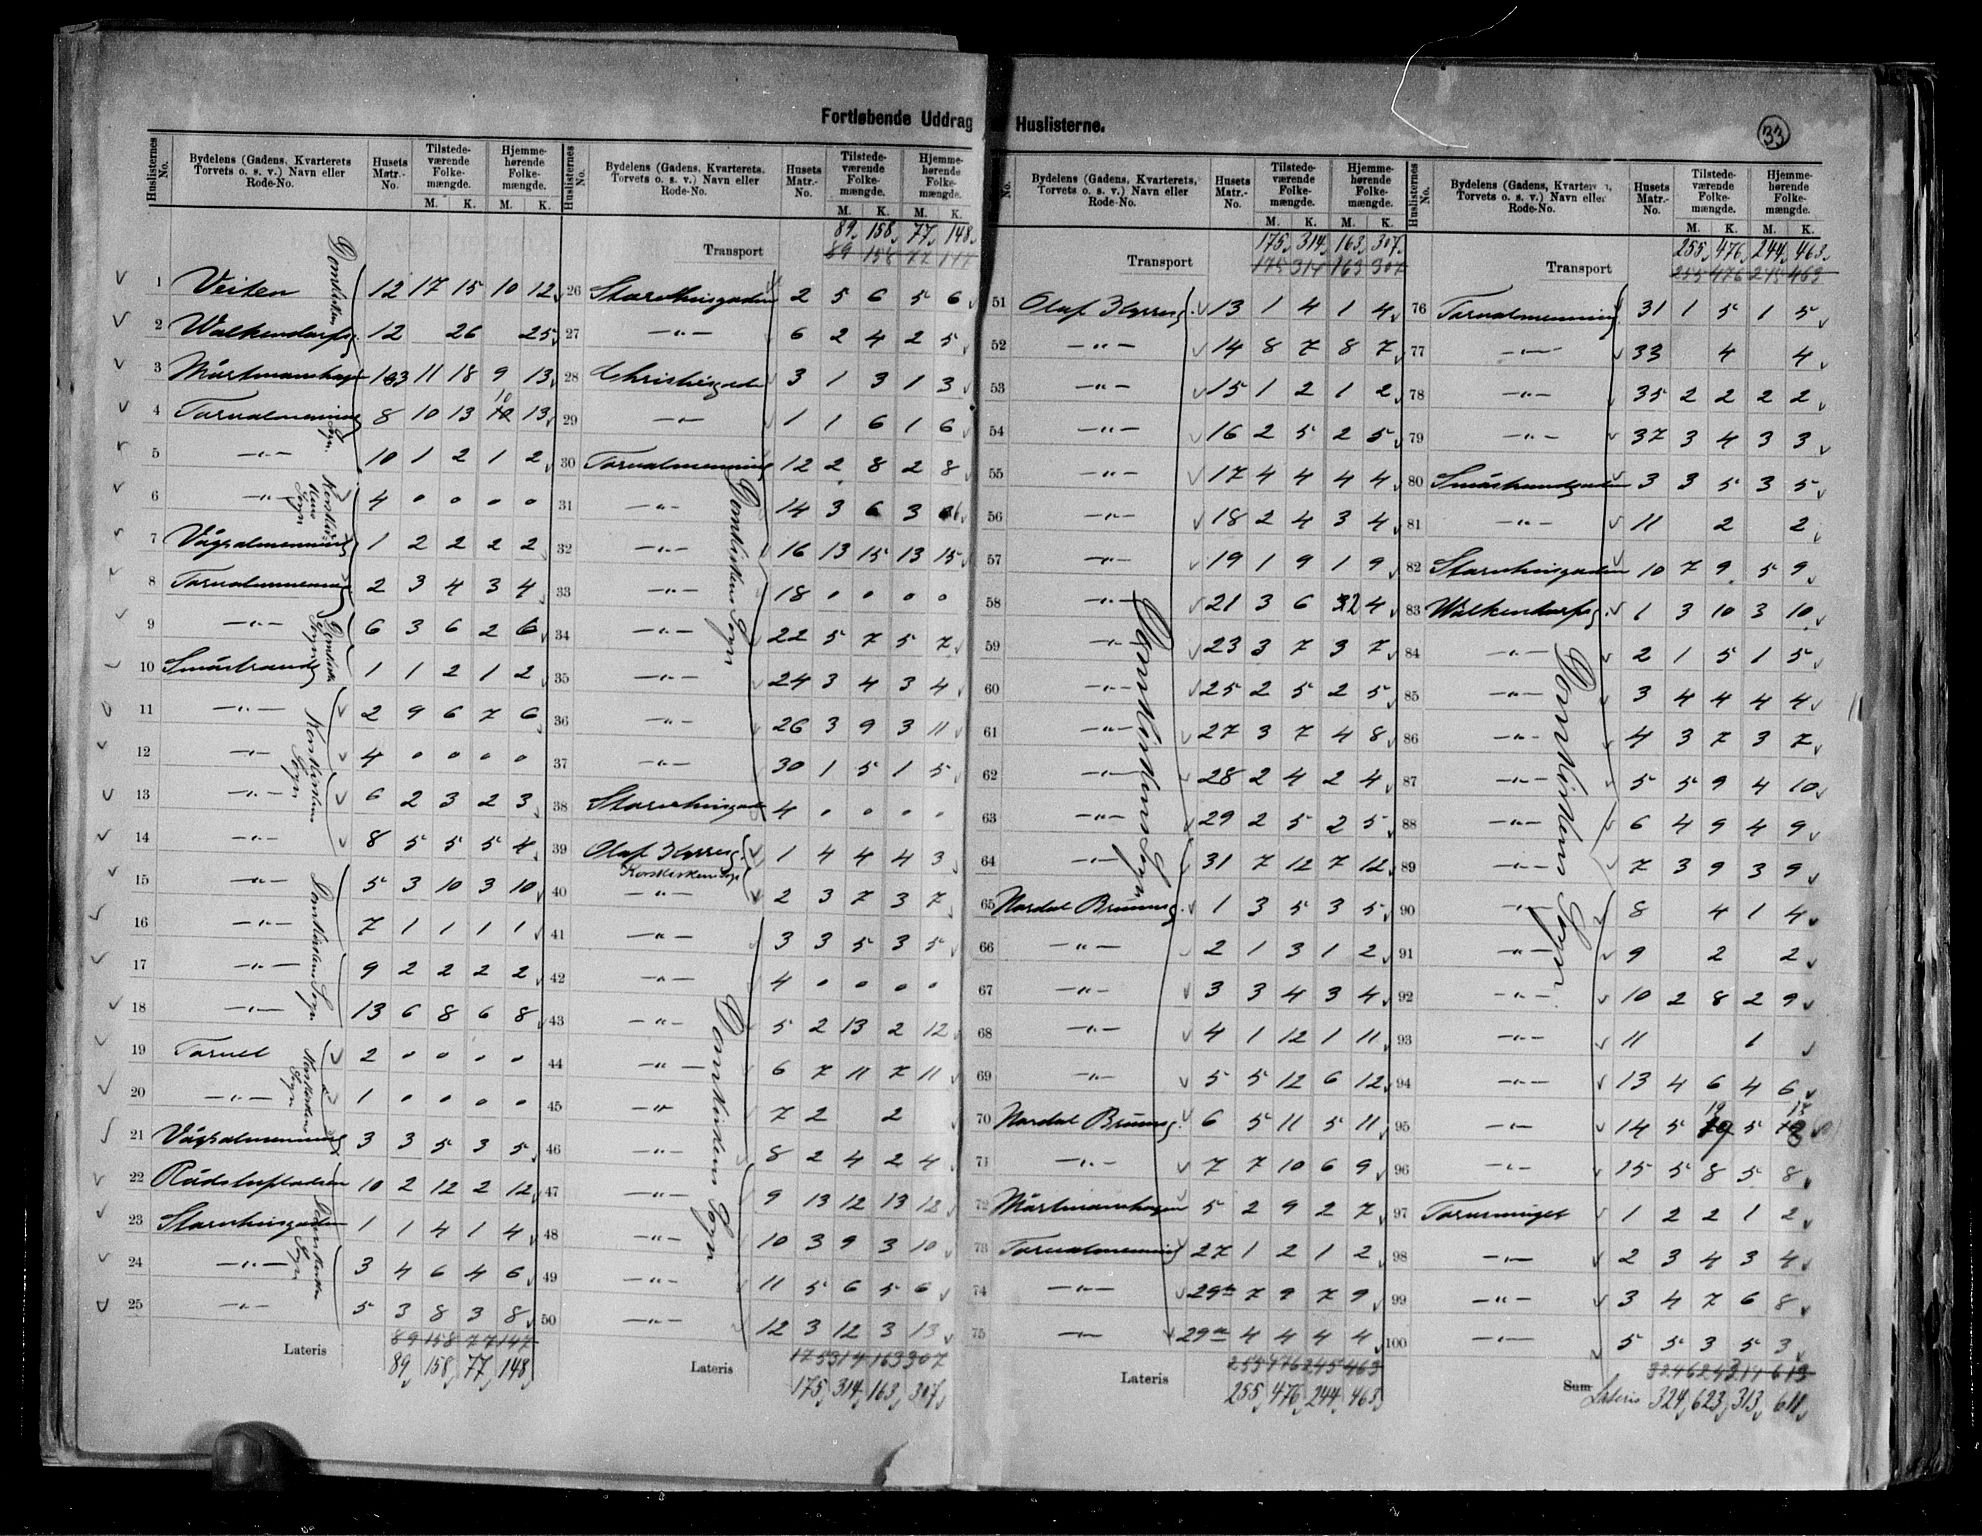 Fortløbende Uddrag Huslisterne.
33
Huslisternes No. | Bydelens (Gadens, Kvarterets Torvets o. s. v.) Navn eller Rode-No. | Husets Matr.-No. | Tilstedeværende Folkemængde. M. K. | Hjemmehørende Folkemængde. M. K.
1 Veiten 12 17 15 10 12
2 Walkendorfsg 12 26 25
3 11 18 9 13
4 Torvalmenning 8 10 13 10 13
5 —"— 10 1 2 1 2
6 —"— 4 0 0 0 0
7 Vågsalmenning 1 2 2 2 2
8 Torvalmenning 2 3 4 3 4
9 —"— 6 3 6 2 6
10 Småstrandg 1 1 2 1 2
11 —"— 2 9 6 7 6
12 —"— 4 0 0 0 0
13 —"— 6 2 3 2 3
14 —"— 8 5 5 5 4
15 —"— 5 3 10 3 10
16 —"— 7 1 1 1 1
17 —"— 9 2 2 2 2
18 —"— 13 6 8 6 8
19 Torvet 2 0 0 0 0
20 —"— 1 0 0 0 0
21 Vågsalmenning 3 3 5 3 5
22 Rådstuepladsen 10 2 12 2 12
23 Starvhusgaden 1 1 4 1 4
24 —"— 3 4 6 4 6
25 —"— 5 3 8 3 8
89 158 77 147
Lateris 89 158 77 148
Domkirkens Sogn
Korskirkens Sogn
Domkirkens Sogn
Korskirkens Sogn
Domkirkens Sogn
Korskirkens Sogn
Domkirkens Sogn
Huslisternes No. | Bydelens (Gadens, Kvarterets, Torvets o. s. v.) Navn eller Rode-No. | Husets Matr.-No. | Tilstedeværende Folkemængde. M. K. | Hjemmehørende Folkemængde. M. K.
89 158 77 148
Transport 89 158 77 147
26 Starvhusgaden 2 5 6 5 6
27 —"— 6 2 4 2 5
28 Christiesgade 3 1 3 1 3
29 —"— 1 1 6 1 6
30 Torvalmenning 12 2 8 2 8
31 —"— 14 3 6 3 6
32 —"— 16 13 15 13 15
33 —"— 18 0 0 0 0
34 —"— 22 5 7 5 7
35 —"— 24 3 4 3 4
36 —"— 26 3 9 3 11
37 —"— 30 1 5 1 5
38 Starvhusgade 4 0 0 0 0
39 Olaf Kyrresg. 1 4 4 4 3
Korskirkens Sogn
40 —"— 2 3 7 3 7
41 —"— 3 3 5 3 5
42 —"— 4 0 0 0 0
43 —"— 5 2 13 2 12
44 —"— 6 7 11 7 11
45 —"— 7 2 2
46 —"— 8 2 4 2 4
47 —"— 9 13 12 13 12
48 —"— 10 3 9 3 10
49 —"— 11 5 6 5 6
50 —"— 12 3 12 3 13
175 314 163 307
Lateris 175 314 163 307
Domkirkens Sogn
Domkirkens Sogn
No. | Bydelens (Gadens, Kvarterets, Torvets o. s. v.) Navn eller Rode-No. | Husets Matr.-No. | Tilstedeværende Folkemængde. M. K. | Hjemmehørende Folkemængde. M. K.
175 314 163 307
Transport 175 314 163 307
51 Olaf Kyrresg. 13 1 4 1 4
52 —"— 14 8 7 8 7
53 —"— 15 1 2 1 2
54 —"— 16 2 5 2 5
55 —"— 17 4 4 4 4
56 —"— 18 2 4 3 4
57 —"— 19 1 9 1 9
58 —"— 21 3 6 2 4
59 —"— 23 3 7 3 7
60 —"— 25 2 5 2 5
61 —"— 27 3 7 4 8
62 —"— 28 2 4 2 4
63 —"— 29 2 5 2 5
64 —"— 31 7 12 7 12
65 Nordal Brunsg. 1 3 5 3 5
66 —"— 2 1 3 1 2
67 —"— 3 3 4 3 4
68 —"— 4 1 12 1 11
69 —"— 5 5 12 6 12
70 Nordal Brunsg. 6 5 11 5 11
71 —"— 7 7 10 6 9
72 5 2 9 2 7
73 Torvalmenning 27 1 2 1 2
74 —"— 29 7 9 7 9
75 —"— 29 4 4 4 4
253 476 245 463
Lateris 255 476 244 463
Domkirkens Sogn
Huslisternes No. | Bydelens (Gadens, Kvarterets, Torvets o. s. v.) Navn eller Rode-No. | Husets Matr.-No. | Tilstedeværende Folkemængde. M. K. | Hjemmehørende Folkemængde. M. K.
255 476 244 463
Transport 255 476 245 463
76 Torvalmenning 31 1 5 1 5
77 —"— 33 4 4
78 —"— 35 2 2 2 2
79 —"— 37 3 4 3 3
80 Småstrandgaden 3 3 5 3 5
81 —"— 11 2 2
82 Starvhusgaden 10 7 9 5 9
83 Walkendorfsg. 1 3 10 3 10
84 —"— 2 1 5 1 5
85 —"— 3 4 4 4 4
86 —"— 4 3 7 3 7
87 —"— 5 5 9 4 10
88 —"— 6 4 9 4 9
89 —"— 7 3 9 3 9
90 —"— 8 4 1 4
91 —"— 9 2 2
92 —"— 10 2 8 2 9
93 —"— 11 1
94 —"— 13 4 6 4 6
95 —"— 14 5 19 5 18
96 —"— 15 5 8 5 8
97 1 2 2 1 2
98 —"— 2 3 4 3 4
99 —"— 3 4 7 6 8
100 —"— 5 5 3 5 3
324 624 314 613
Sum Lateris 324 623 313 611
Domkirkens Sogn